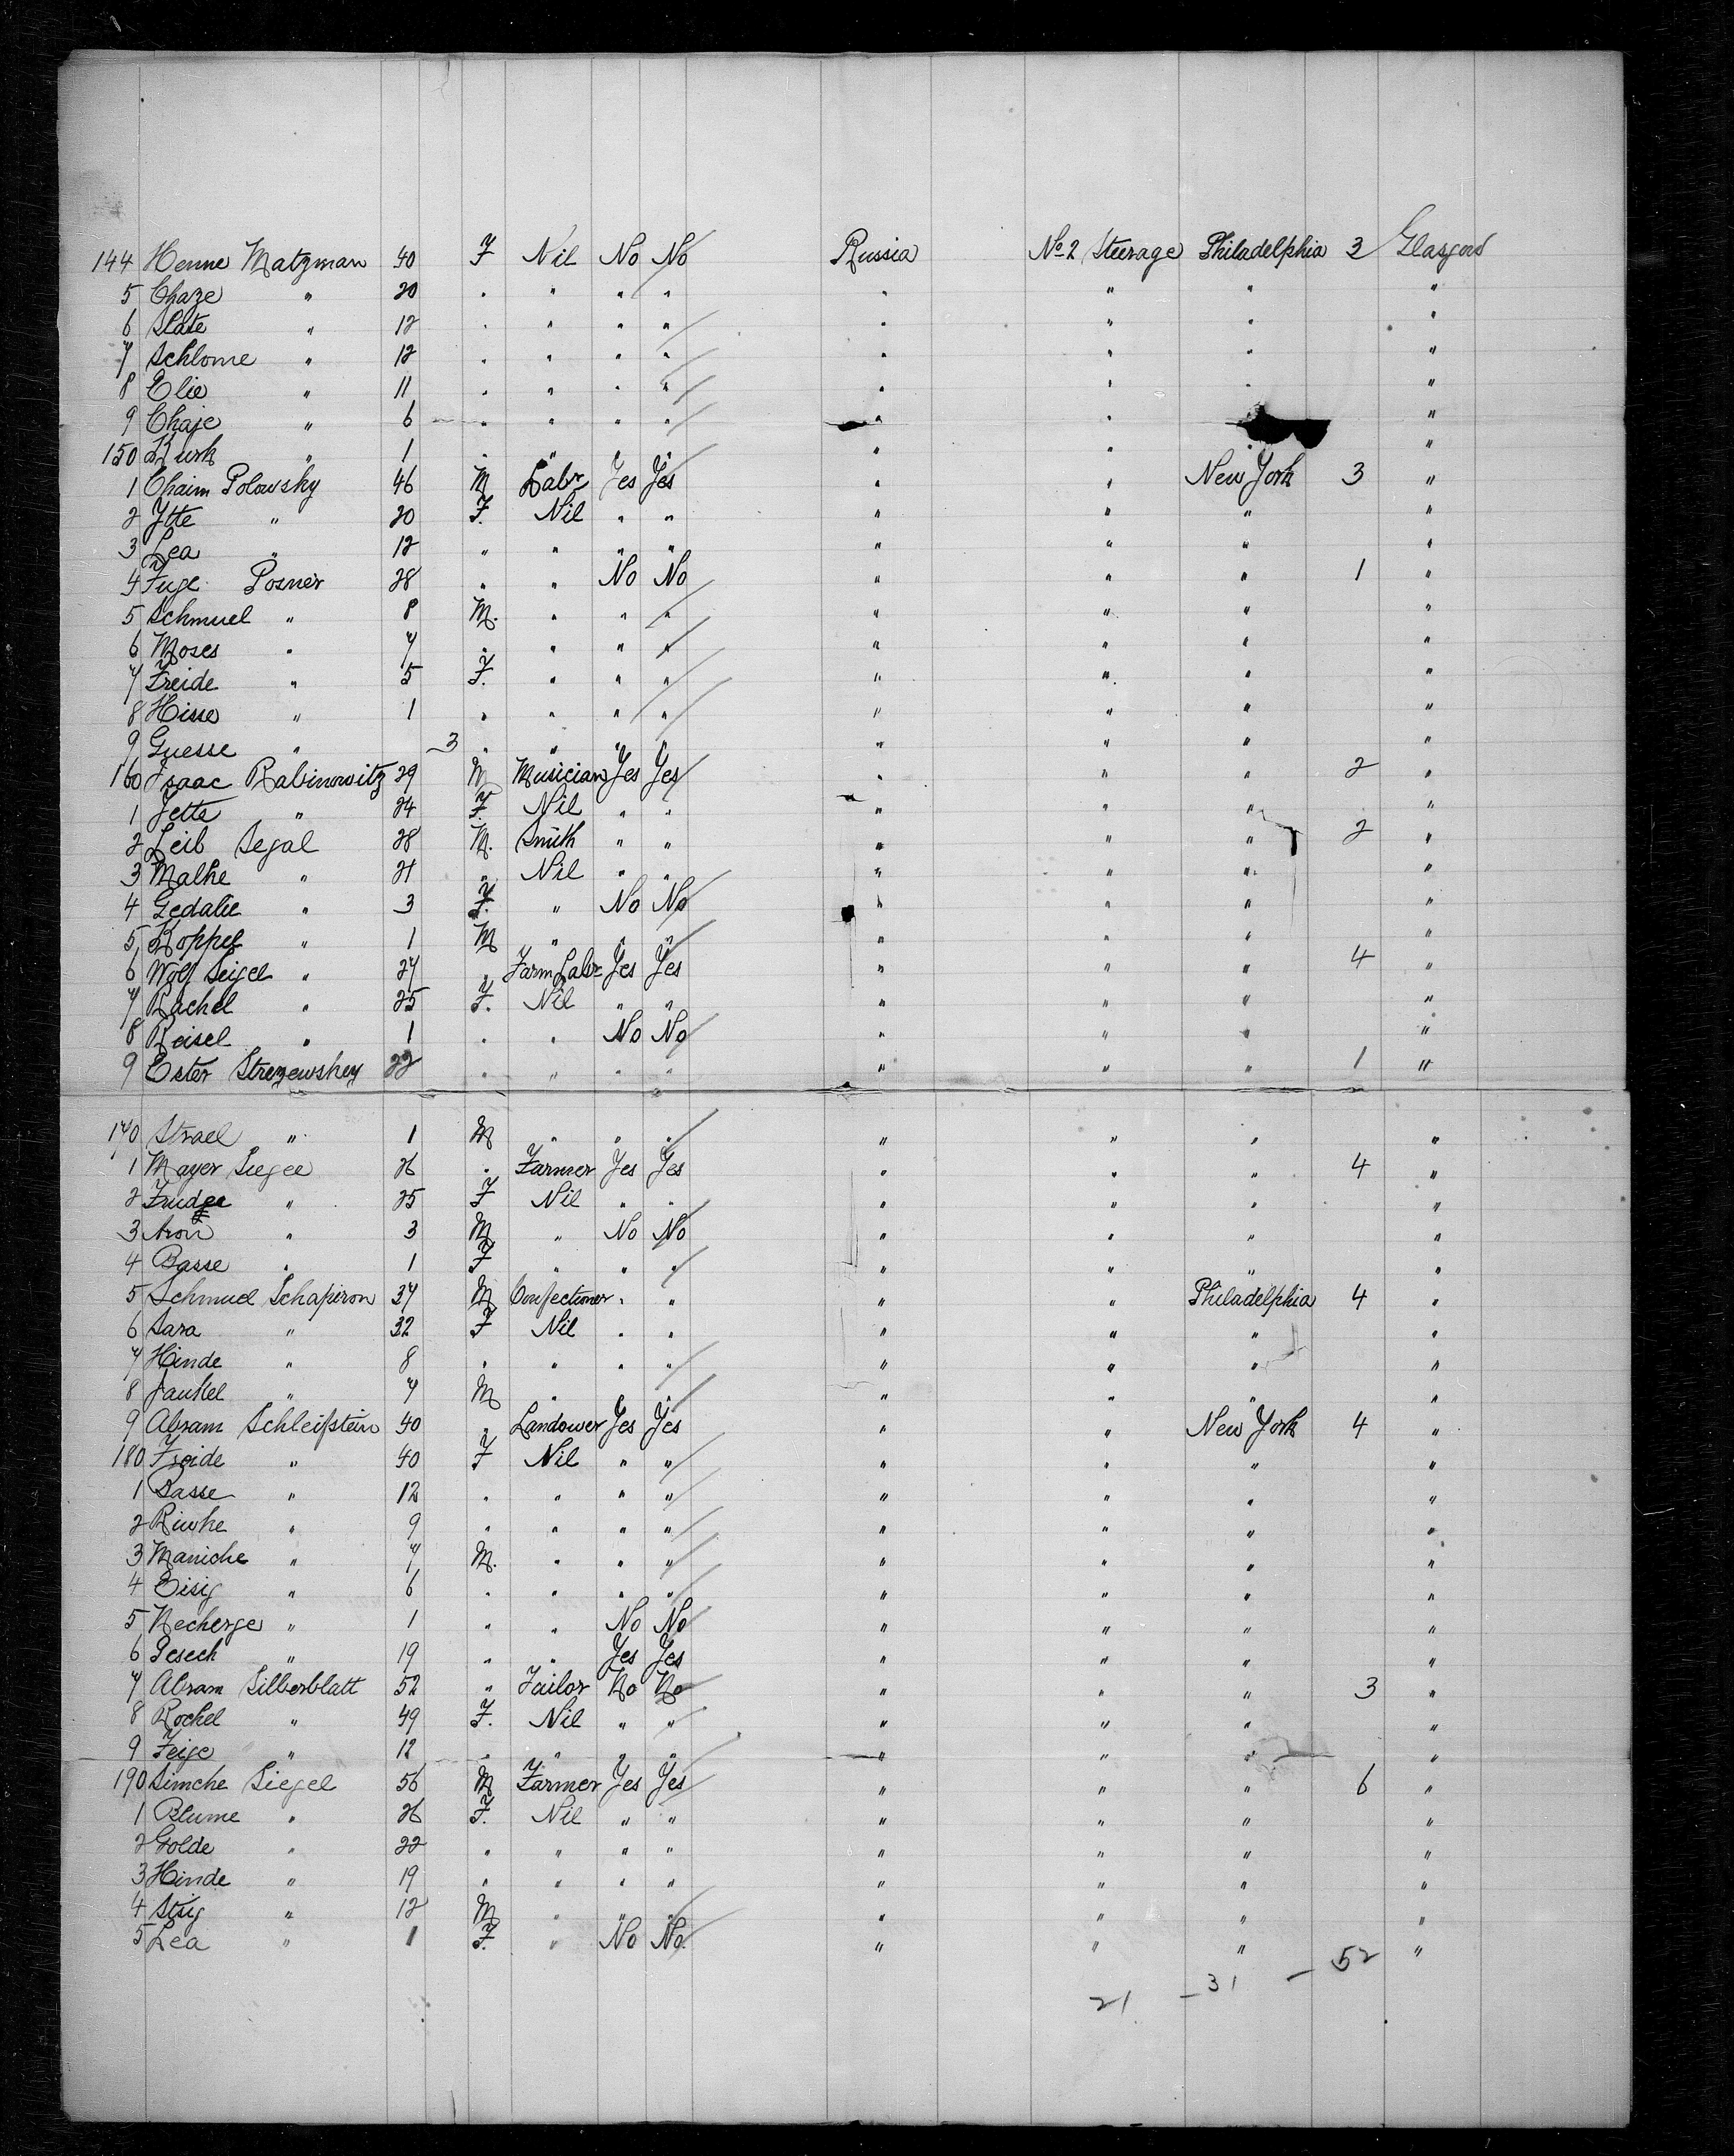 144 Henne Matzman 40 F Nil No No Russia No 2 Steerage Philadelphia 3 Glasgow
5 Chaze " 20 " " " " " " " "
6 Slate " 12 " " " " " " " "
7 Schlome " 12 " " " " " " " "
8 Elie " 11 " " " " " " " "
9 Chaje " 6 " " " " " " "
150 Kurk " 1 " " " " " " " "
1 Chaim Polowsky 46 M Labr Yes Yes " " New York 3 "
2 Ytte " 20 F. Nil " " " " " "
3 Lea " 12 " " " " " " " "
4 Fuge Posner 28 " " No No " " " 1 "
5 Schmuel " 8 M. " " " " " " "
6 Moses " 7 " " " " " " " "
7 Freide " 5 F. " " " " " " "
8 Hisse " 1 " " " " " " " "
9 Guesse " 3 " " " " " " " "
160 Isaac Rabinowitz 29 M Musician Yes Yes " " " 2 "
1 Jette " 24 F. Nil " " " " " "
2 Leib Segal 28 M. Smith " " " " " 2 "
3 Malke " 21 " Nil " " " " " "
4 Gedalie " 3 F. " No No " " " "
5 Koppel " 1 M " " " " " " "
6 Wolf Seigel " 27 " Farm Labr Yes Yes " " " 4 "
7 Rachel " 25 F. Nil " " " " " "
8 Reisel " 1 " " No No " " " "
9 Ester Strezewskey 22 " " " " " " " 1 "
170 Strael " 1 M " " " " " " "
1 Mayer Siegel 26 " Farmer Yes Yes " " " 4 "
2 " 25 F Nil " " " " " "
3 Aron " 3 M " No No " " " "
4 Basse " 1 F " " " " " " "
5 Schmuel Schapiron 37 M Confectioner " " " " Philadelphia 4 "
6 Sara " 32 F Nil " " " " " "
7 Hinde " 8 " " " " " " " "
8 Jankel " 7 M " " " " " " "
9 Abram Schleifstein 40 " Landower Yes Yes " " New York 4 "
180 Freide " 40 F Nil " " " " " "
1 Basse " 12 " " " " " " " "
2 Riwke " 9 " " " " " " " "
3 Maniche " 7 M. " " " " " " "
4 Eisig " 6 " " " " " " " "
5 Necherge " 1 " " No No " " " "
6 Pesech " 19 " " Yes Yes " " " "
7 Abram Silberblatt 52 " Tailor No No " " " 3 "
8 Rochel " 49 F. Nil " " " " " "
9 Feige " 12 " " " " " " " "
190 Simche Siegel 56 M Farmer Yes Yes " " " 6 "
1 Blume " 26 F. Nil " " " " " "
2 Golde " 22 " " " " " " " "
3 Hinde " 19 " " " " " " " "
4 Sisig " 12 M " " " " " " "
5 Lea " 1 F. " No No. " " " "
21 - 31 - 52